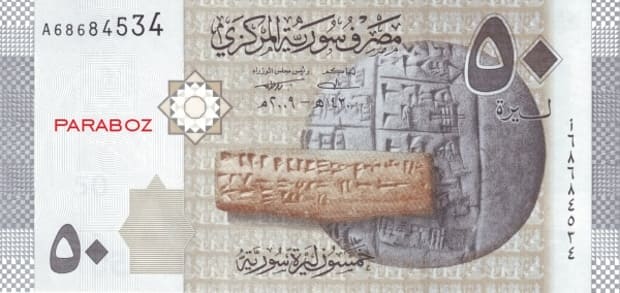 A68684534
مصرف سورية المركزي
٥٠
ليرة
رئيس مجلس الوزراء
١٤٣٠هـ - ٢٠٠٩م
PARABOZ
أ٦٨٦٨٤٥٣٤
٥٠
خمسون ليرة سورية